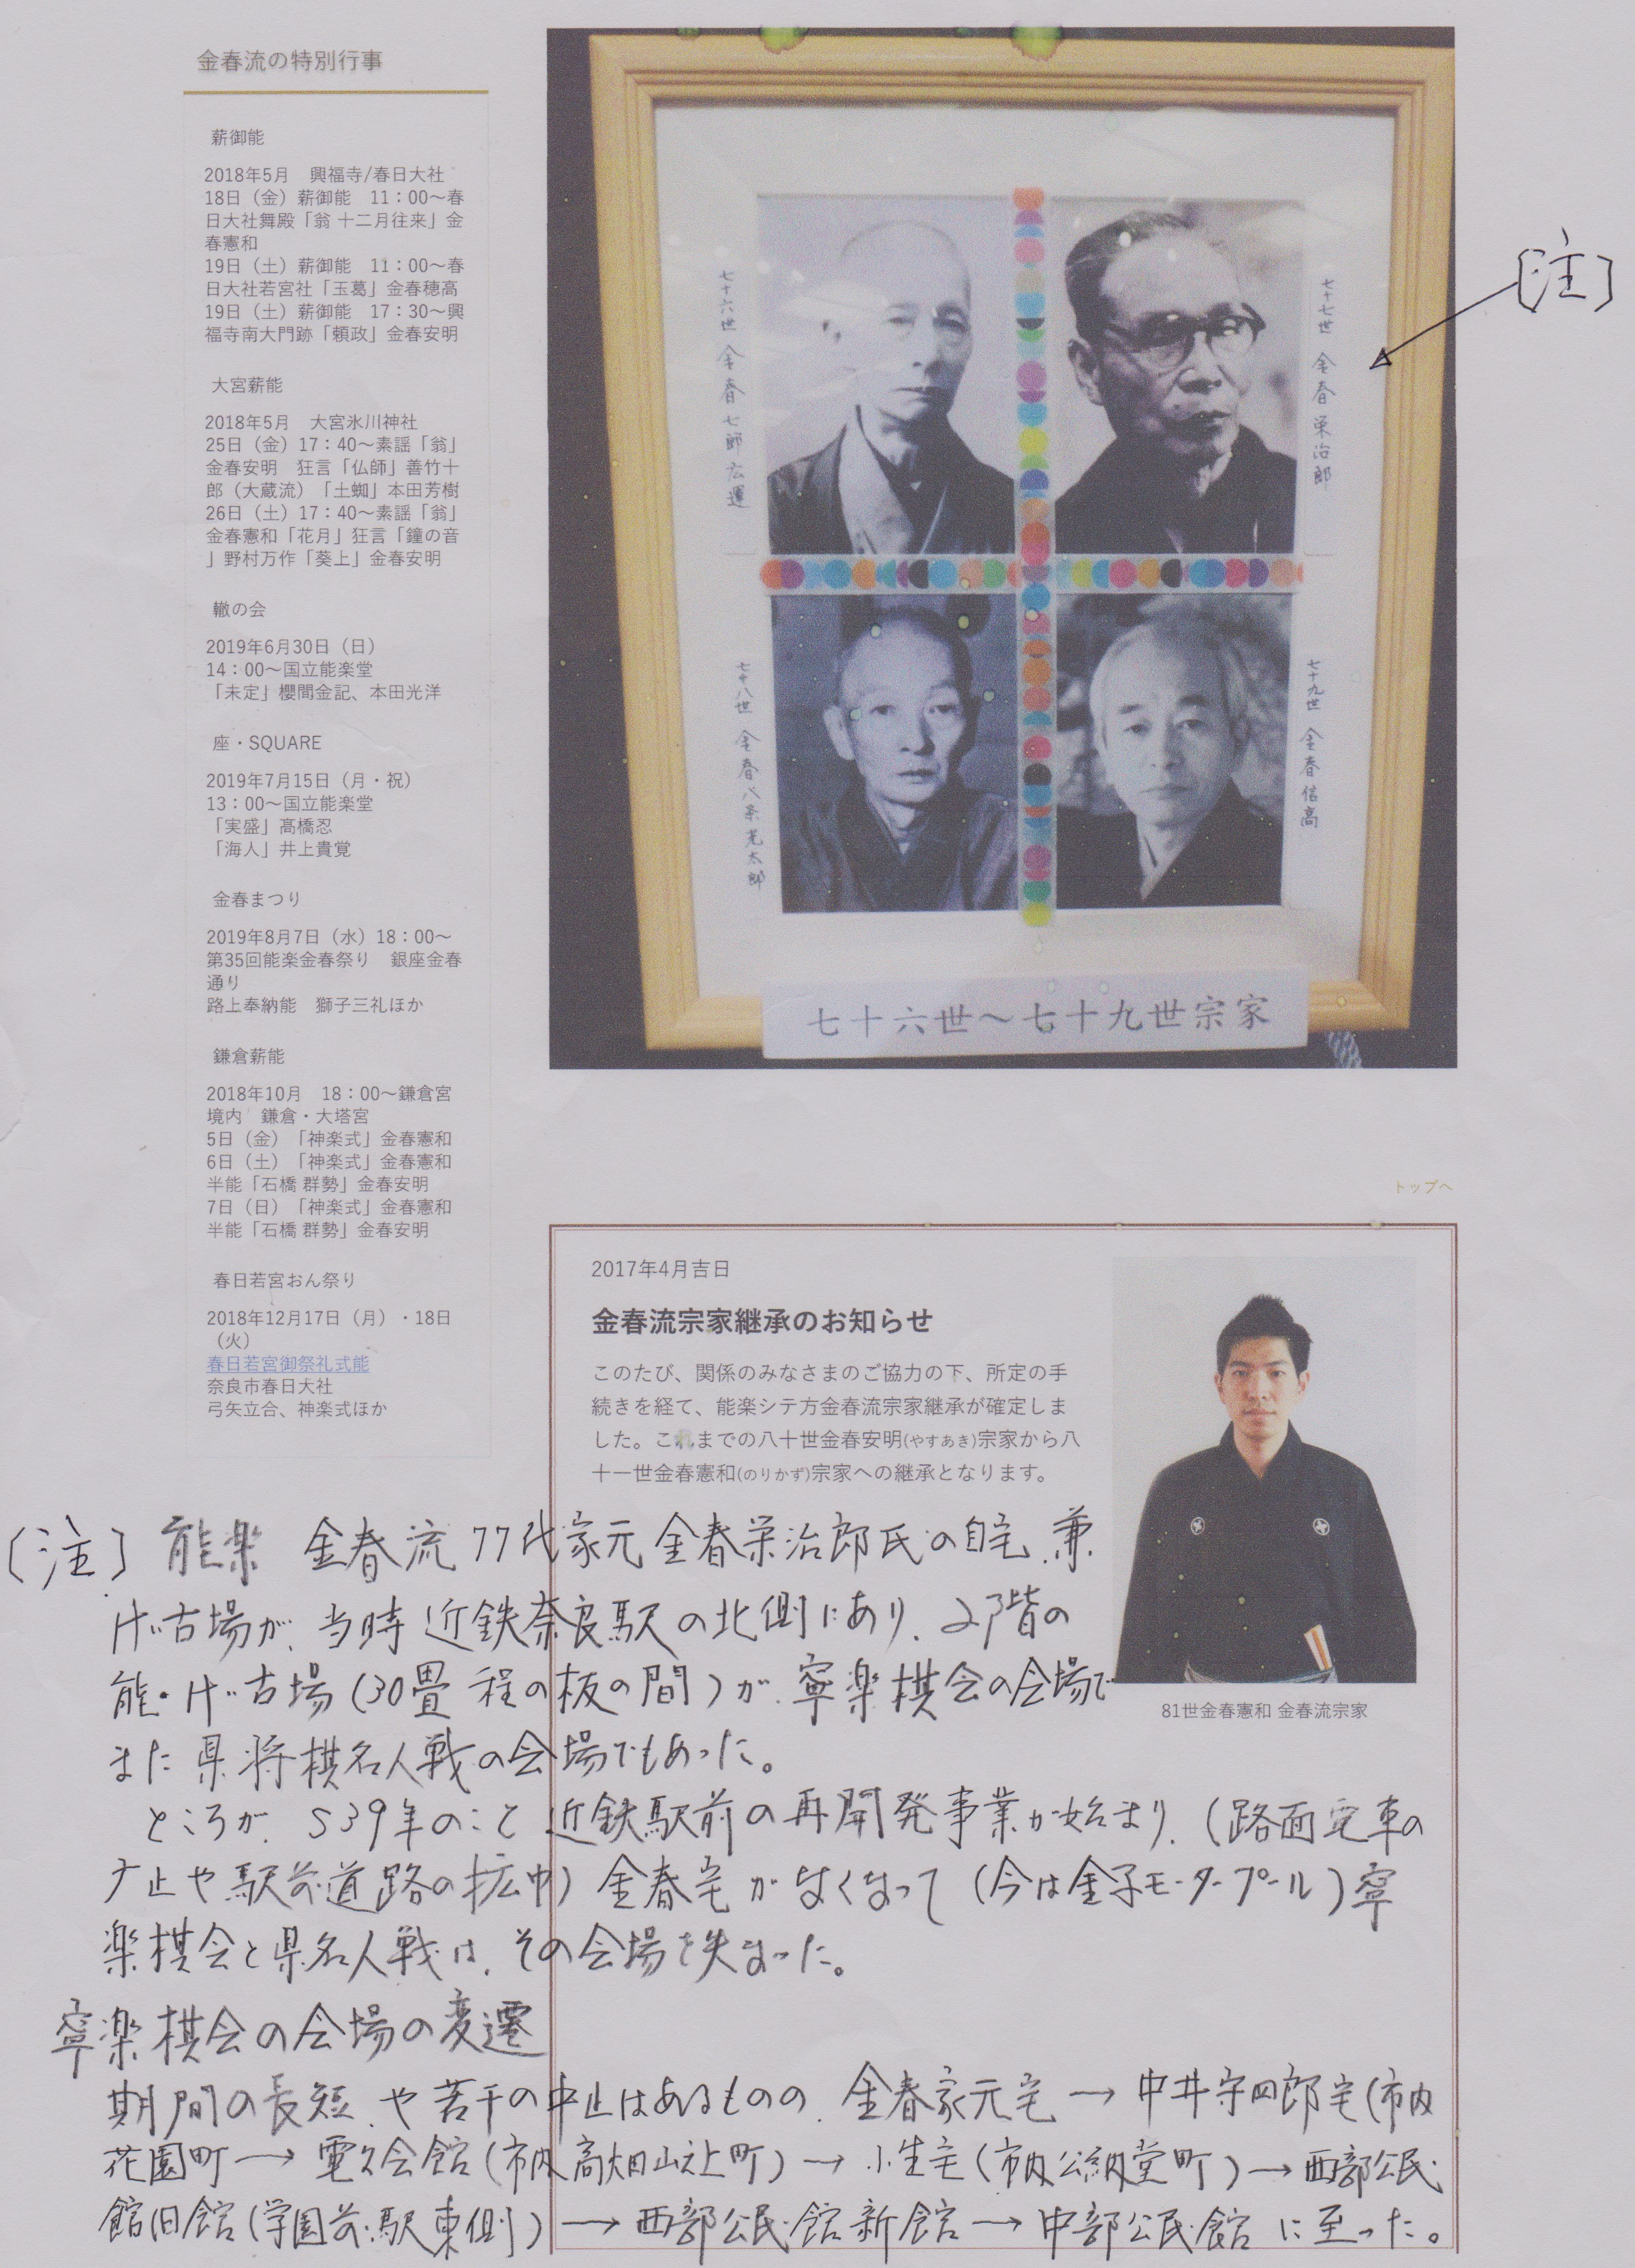 金春流の特別行事
薪御能
2018年5月　興福寺/春日大社
18日（金）薪御能　11：00〜春
日大社舞殿「翁 十二月往来」金
春憲和
19日（土）薪御能　11：00〜春
日大社若宮社「玉葛」金春穂高
19日（土）薪御能　17：30〜興
福寺南大門跡「頼政」金春安明
大宮薪能
2018年5月　大宮氷川神社
25日（金）17：40〜素謡「翁」
金春安明　狂言「仏師」善竹十
郎（大蔵流）「土蜘」本田芳樹
26日（土）17：40〜素謡「翁」
金春憲和「花月」狂言「鐘の音
」野村万作「葵上」金春安明
轍の会
2019年6月30日（日）
14：00〜国立能楽堂
「未定」櫻間金記、本田光洋
座・SQUARE
2019年7月15日（月・祝）
13：00〜国立能楽堂
「実盛」髙橋忍
「海人」井上貴覚
金春まつり
2019年8月7日（水）18：00〜
第35回能楽金春祭り　銀座金春
通り
路上奉納能　獅子三礼ほか
鎌倉薪能
2018年10月　18：00〜鎌倉宮
境内　鎌倉・大塔宮
5日（金）「神楽式」金春憲和
6日（土）「神楽式」金春憲和
半能「石橋 群勢」金春安明
7日（日）「神楽式」金春憲和
半能「石橋 群勢」金春安明
春日若宮おん祭り
2018年12月17日（月）・18日
（火）
春日若宮御祭礼式能
奈良市春日大社
弓矢立合、神楽式ほか
七十六世 金春七郎広運
七十七世 金春栄治郎
七十八世 金春八条光太郎
七十九世 金春信高
七十六世〜七十九世宗家
〔注〕
トップへ
2017年4月吉日
金春流宗家継承のお知らせ
このたび、関係のみなさまのご協力の下、所定の手
続きを経て、能楽シテ方金春流宗家継承が確定しま
した。これまでの八十世金春安明(やすあき)宗家から八
十一世金春憲和(のりかず)宗家への継承となります。
81世金春憲和 金春流宗家
〔注〕能楽　金春流77代家元金春栄治郎氏の自宅、兼
けい古場が、当時近鉄奈良駅の北側にあり、2階の
能・けい古場(30畳程の板の間)が、寧楽棋会の会場で
また県将棋名人戦の会場でもあった。
ところが、S39年のこと近鉄駅前の再開発事業が始まり、(路面電車の
廾止や駅前道路の拡巾)金春宅がなくなって(今は金子モータープール)寧
楽棋会と県名人戦は、その会場を失なった。
寧楽棋会の会場の変遷
期間の長短、や若干の中止はあるものの、金春家元宅→中井守四郎宅(市内
花園町→電久会館(市内高畑山之上町)→小生宅(市内公納堂町)→西部公民
館旧館(学園前駅東側)→西部公民館新館→中部公民館に至った。